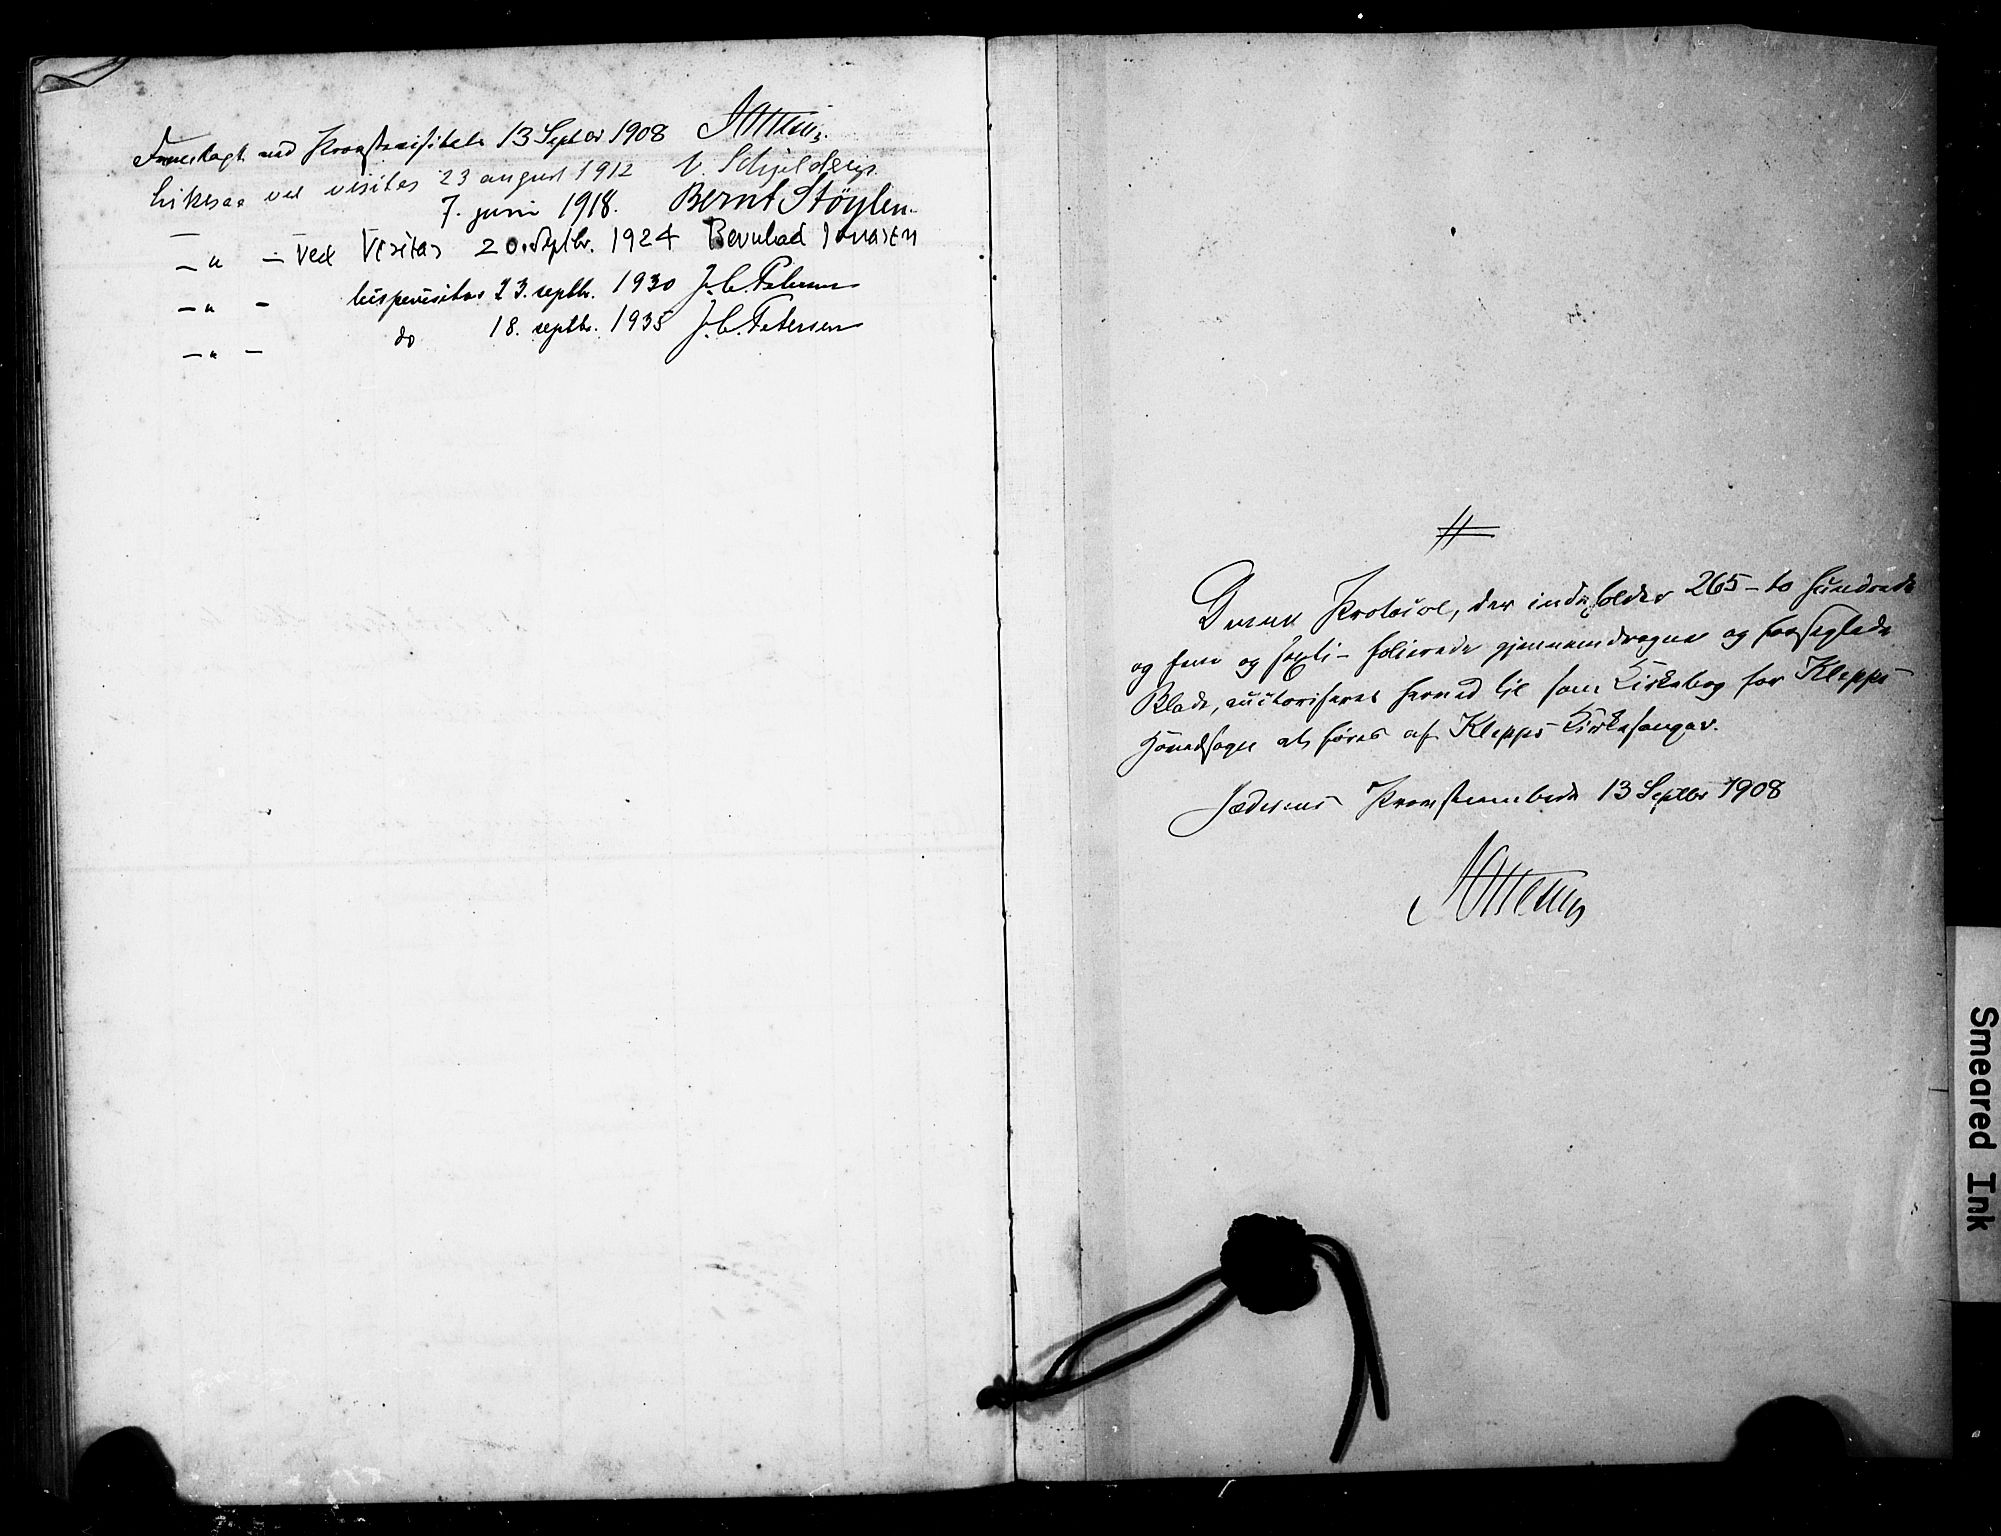 Foredragt ved Provstevisitats 13 Septbr 1908
Likesaa ved visitas 23 august 1912 V. Schjelderup.
7. juni 1918. Bernt Støylen.
— " — Ved Visitas 20. septbr. 1924 Bernhad Jonasen
— " — bispevisitas 23. septbr. 1930 J. C. Petersen
— " — do 18. septbr. 1935 J. C. Petersen
Denne Protocol, der indeholder 265 – to hundrede
og fem og sexti – folierede gjennemdragne og forseglede
Blade, auctoriseres herved til som Kirkebog for Klepps
Hovedsogn at føres af Klepps Kirkesanger.
Jæderens Provsteembede 13 Septbr 1908
Smeared Ink